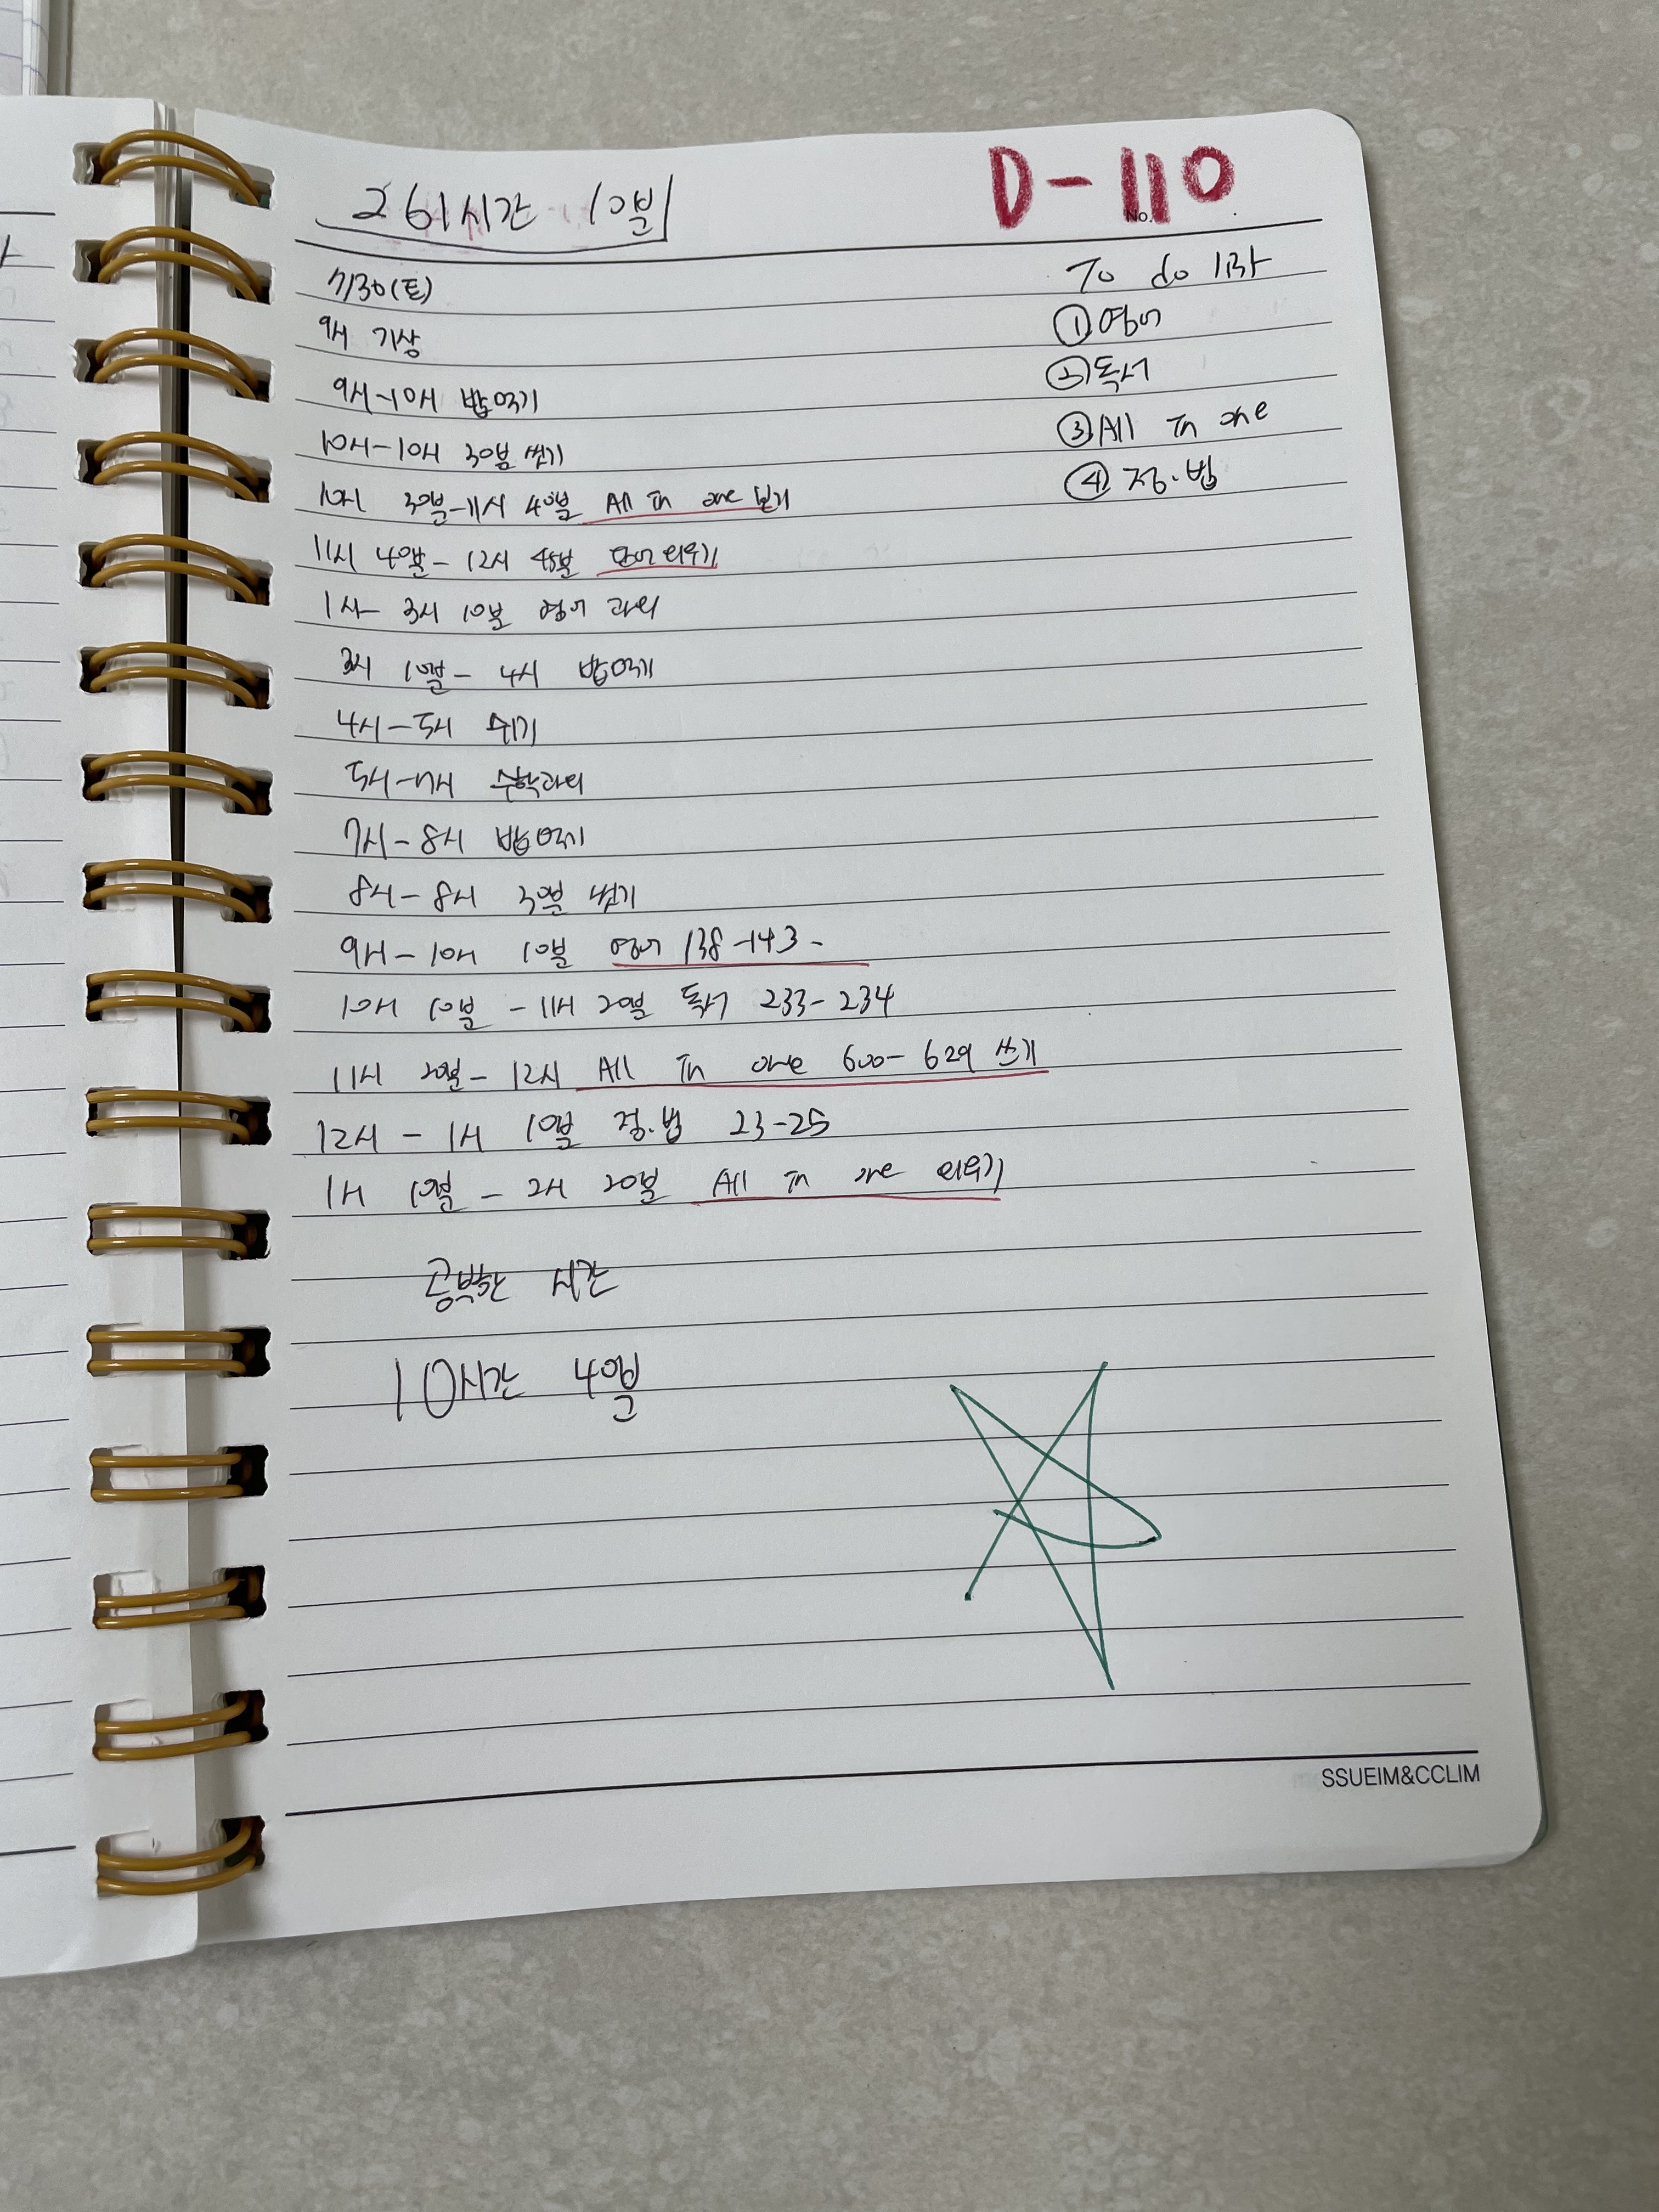 261시간 10분
D-110
No.
7/30(토)
To do 1화
9시 기상
① 영어
9시-10시 밥먹기
② 독서
10시-10시 30분 씻기
③ All In one
10시 30분-11시 40분 All In one 보기
④ 정.법
11시 40분- 12시 45분 단어 외우기
1시- 3시 10분 영어 과외
3시 10분- 4시 밥먹기
4시-5시 쉬기
5시-7시 수학과외
7시-8시 밥먹기
8시-8시 30분 씻기
9시-10시 10분 영어 138-143-
10시 10분 - 11시 20분 독서 233-234
11시 20분- 12시 All In one 600- 629 쓰기
12시 - 1시 10분 정.법 23-25
1시 10분 - 2시 20분 All In one 외우기
공부한 시간
10시간 40분
SSUEIM&CCLIM